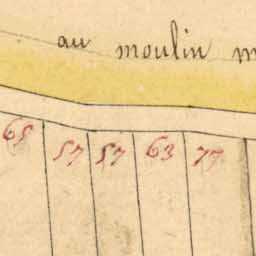 au moulin
65 57 57 63 77